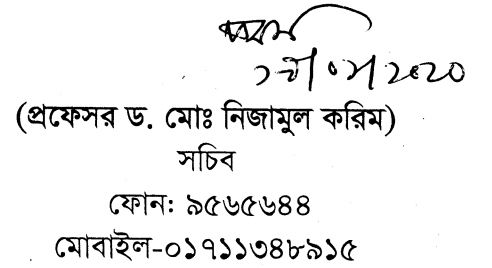 (প্রফেসর ড. মোঃ নিজামুল করিম)
সচিব
ফোন: ৯৫৬৫৬৪৪
মোবাইল-০১৭১১৩৪৮৯১৫